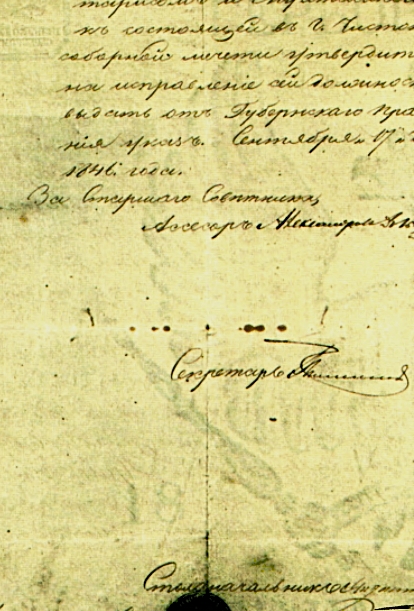 къ состоящей въ г. Чистоп
соборной мечети утвердит
на исправленіе сей должнос
выдать отъ Губернскаго Пра
нія указъ. Сентября 17
1846 года.
За Старшаго Советника,
Ассесоръ
Секретарь
Столоначальникъ